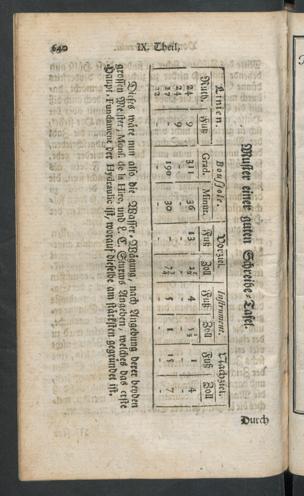 640 IX. Theil,
Muster einer guten Schreibe-Tafel.
Linien. Boussole. Vorziel. Instrument. Nachziel.
Ruth. Fuß Grad. Minute. Fuß Zoll Fuß Zoll Fuß Zoll
24 9 311 36 13 4 1 4
24 9
17 190 30 5 15 7
12
Dieses wäre nun also die Wasser-Wägung, nach Angebung derer beyden
grossen Meister, Mons. de la Hire, und L. C. Sturms Angeben, welches das erste
Haupt-Fundament der Hydraulic ist, worauf dieselbe am stärksten gegründet ist.
Durch